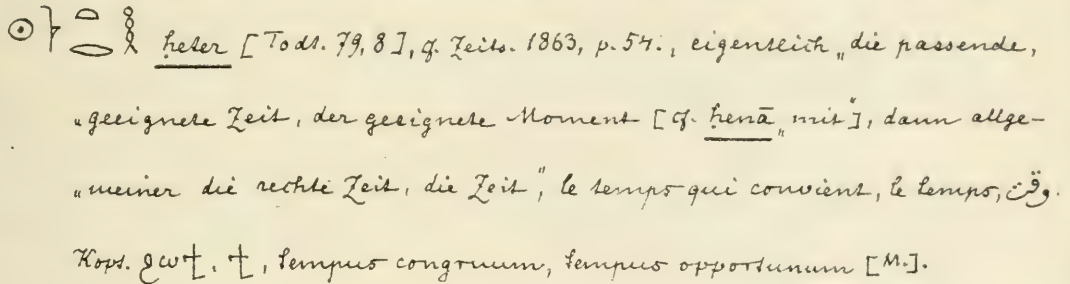 ḥeter [Todt. 79, 8], cf. Zeits. 1863, p. 54., eigentlich „die passende,
„geeignete Zeit, der geeignete Moment [cf. ḥenā „mit“], dann allge-
„meiner die rechte Zeit, die Zeit“, le temps qui convient, le temps, وقت.
Kopt. ϩⲱϯ, ϯ, tempus congruum, tempus opportunum [M.].